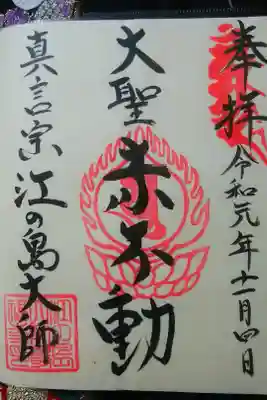 奉拝 令和元年十一月四日
大聖赤不動
真言宗江の島大師